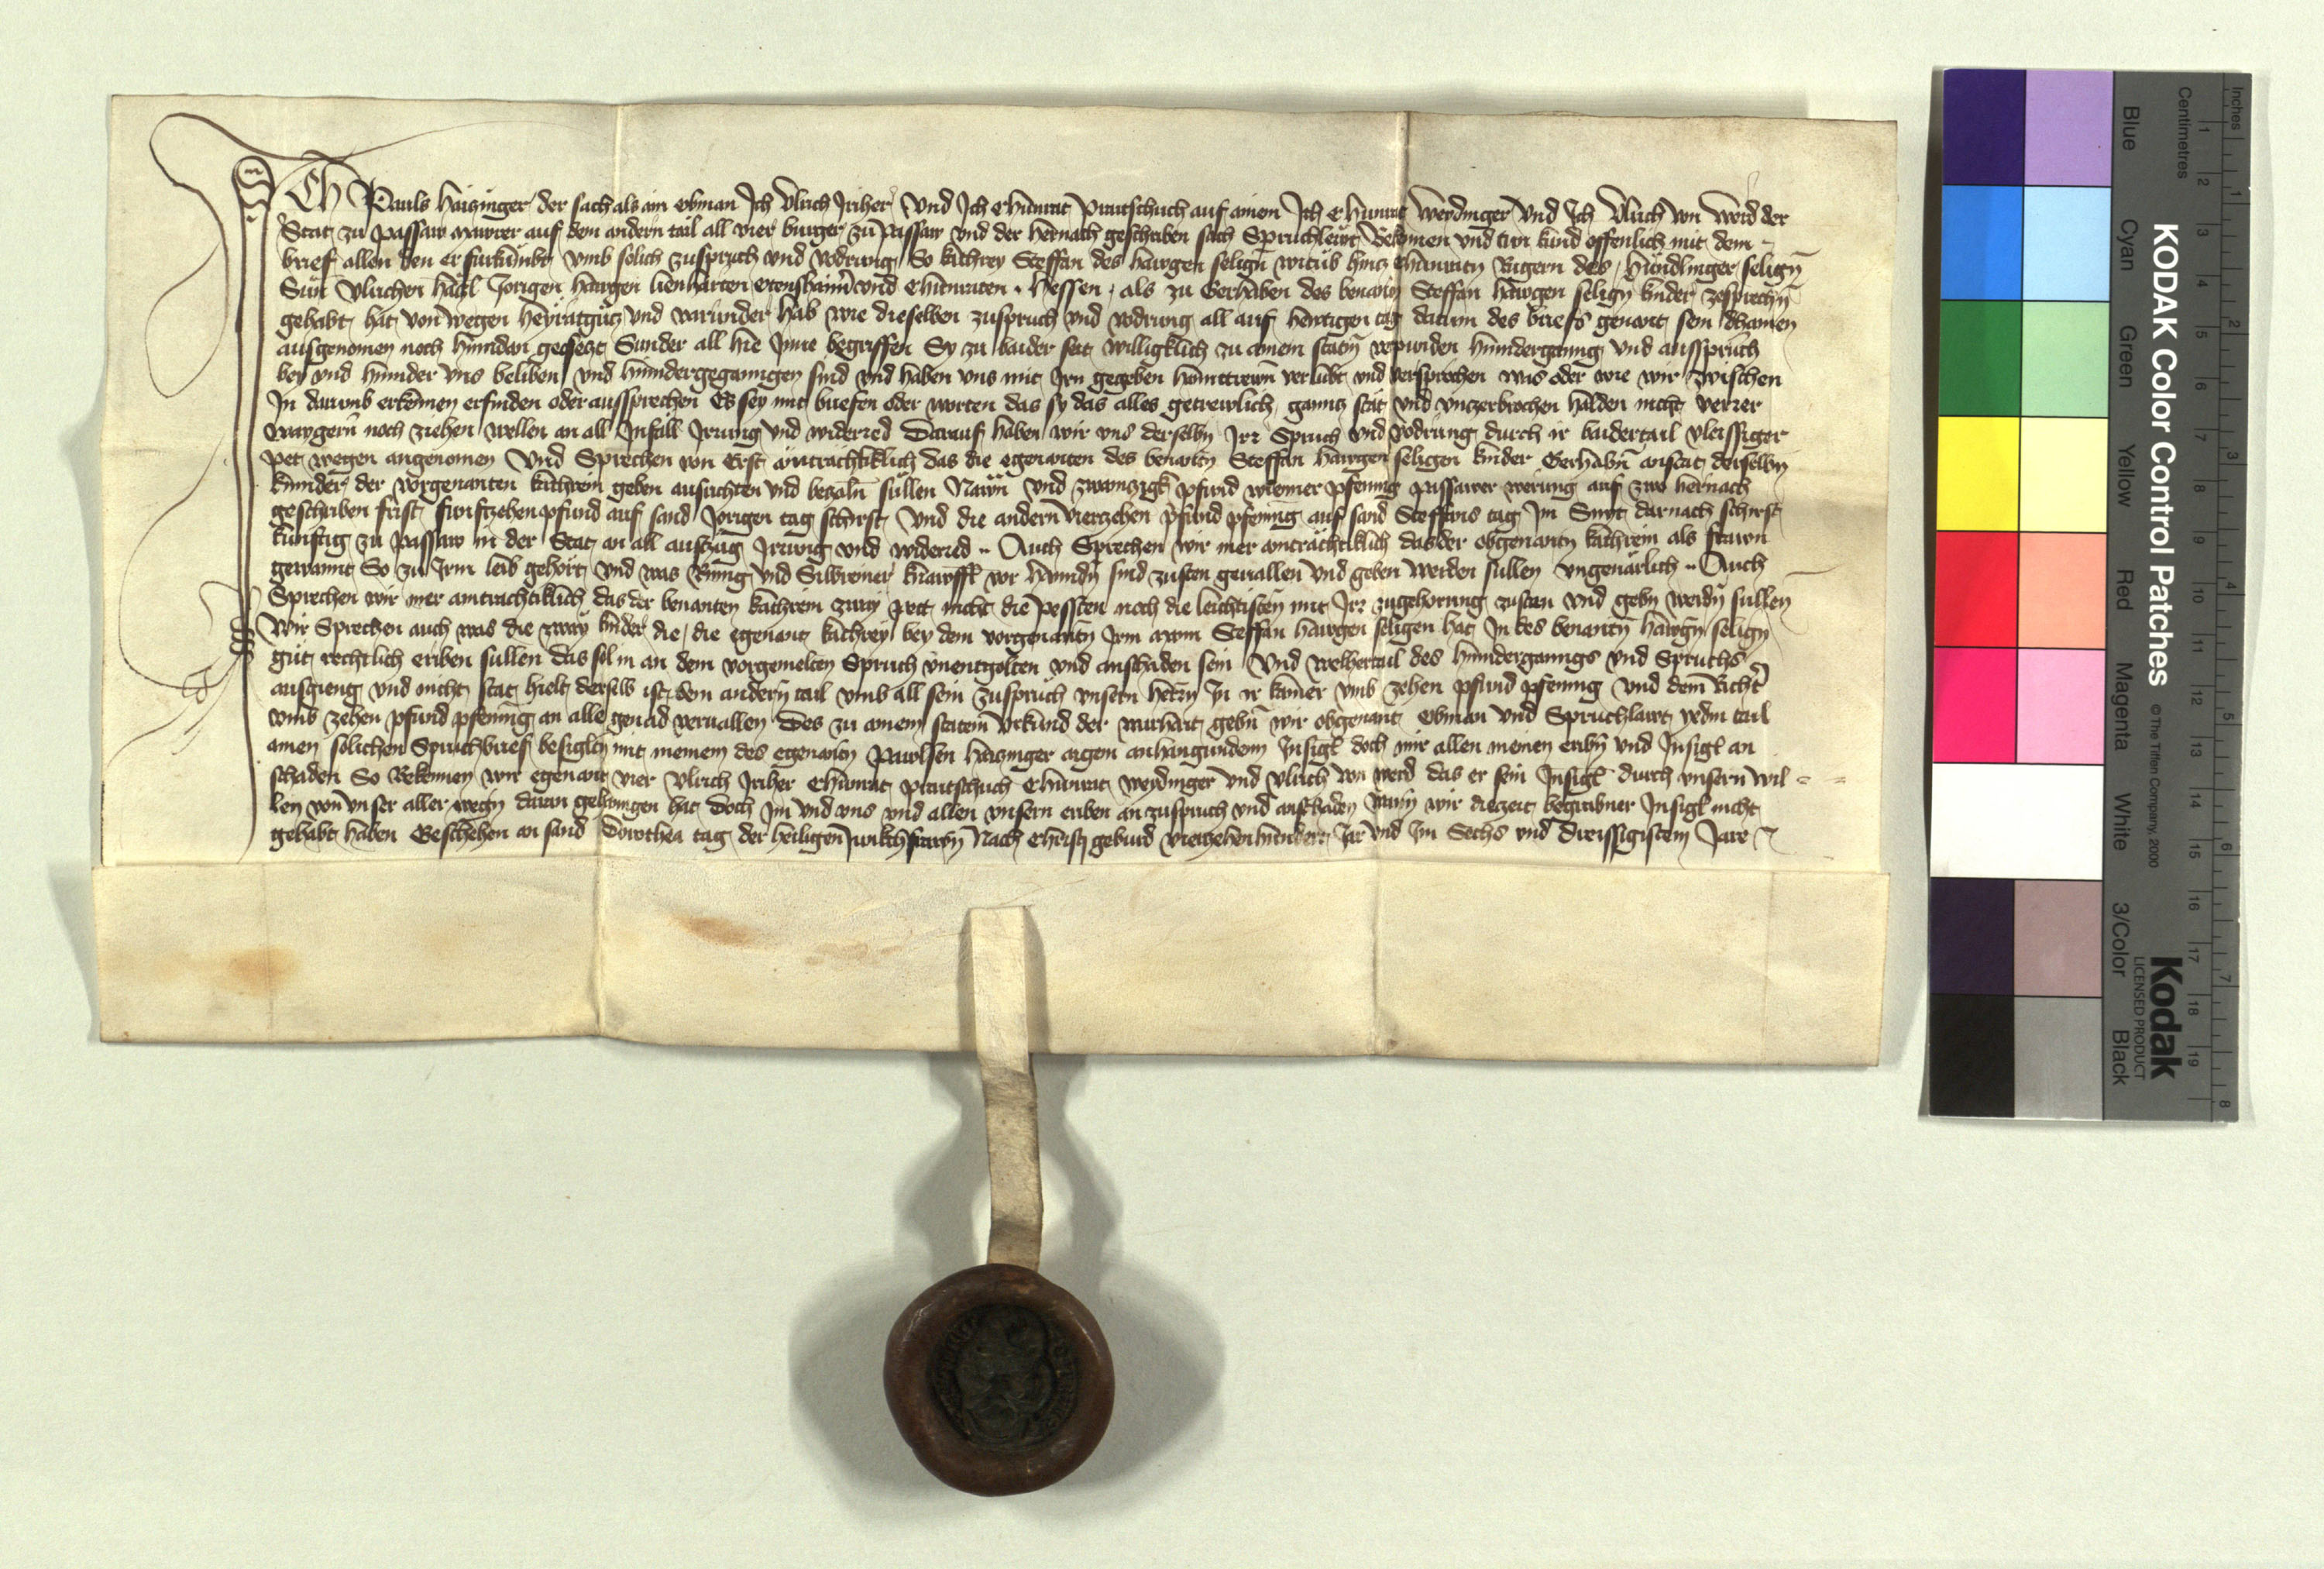 ICH Pauls Haizinger der sach als ain obman Ich Ulrich Iriher Und Ich Chunrat Prantschuch auf ainem Ich Chunrat Werdinger Und Ich Ulrich von Werd der
Stat zu Passaw maurer auf dem andern tail all vier burger zu Passaw und der hernach geschriben sach Spruchlewt Bekennen und tun kund offenlich mit dem
brief allen den er furkumbt Umb solich zuspruch und vodrung So kathrey Steffan des hawgen seligen witib hintz Chunraten Rugern des Hündlinger seligen
Sun Ulrichen hägl Jorigen hawgen lienharten und Chunraten Hessen als zu Gerhaben des benanten Steffan hawgen seligen kinder zesprechen
gehabt hat von wegen heyratguts und varunder hab wie dieselben zuspruch und vodrung all auf hewtigen tag datum des briefs genant sein dhainen
ausgenomen noch hinndan gesetzt Sunder all hie Inne begriffen Sy zu baider seit willigklich zu ainem stäten verpunden hinndergangg und ausspruch
bey und hinnder uns beliben und hinndergegangen sind und haben uns mit Irn gegeben hanttrewn verlubt und versprochen was oder wie wir zwischen
In darumb erkennen erfinden oder aussprechen Es sey mit briefen oder worten das sy das alles getrewlich ganntz stät und unzerbrochen halden nicht verrer
waygern noch ziehen wellen an all Infäll Irrung und widerred Darauf haben wir uns derselben Irr Spruch und vodrung durch ir baidertail vleissiger
pet wegen angenomen Und Sprechen von Erst ainträchtiklich das die egenanten des benanten Steffan hawgen seligen kinder Gerhaben anstat derselben
kinnder der vorgenanten kathrein geben ausrichten und bezaln sullen Nawn und zwainczigk pfund wienner pfening passawer werung auf zwo hernach
geschriben frist funfzehen pfund auf sand Jorigen tag schirst Und die andern vierzehen pfund pfening auf sand Steffans tag Im Snit darnach schirst
kunftig zu Passaw in der Stat an all auszug Irrung und widerred Auch Sprechen wir mer ainträchtiklich das der obgenanten kathrein als frawn
gewannt So zu Irm leib gehört und was Ring und Silbreiner vor hannden sind zusten geuallen und geben werden sullen ungeuärlich Auch
Sprechen wir mer ainträchtiklich das der benanten kathrein zway pett nicht die pessten noch die leichtisten mit Irr zugehorung zustan und geben werden sullen
Wir Sprechen auch was die zway kinder die die egenant kathrey bey dem vorgenanten Irm mann Steffan hawgen seligen hat In des benanten hawgen seligen
gut rechtlich erben sullen das sol in an dem vorgemelten Spruch unentgolten und anschaden sein Und welhertail des hinndergangs und Spruchs
ausgieng und nicht stät hielt derselb ist dem andern tail umb all sein zuspruch unsern herrn In ir kamer umb zehen pfund pfening und dem Richter
umb zehen pfund pfening an alle genad veruallen Des zu ainem stätem urkund der warhait geben wir obgenant Obman und Spruchlawt yedem tail
ainen solichen Spruchbrief besiglten mit meinem des egenanten Paulsen Haizinger aigen anhangundem Insigl doch mir allen meinen erben und Insigl an
schaden So Bekennen wir egenant vier Ulrich Iriher Chunrat prantschuch Chunrat Werdinger und Ulrich von Werd das er sein Insigl durch unsern wil
len von unser aller wegen daran gehangen hat doch Im und uns und allen unsern erben an zuspruch und anschaden wann wir diezeit begrabner Insigl nicht
gehabt haben Geschehen an sand Dorothea tag der heiligen Junkchfrawn Nach Christi geburd vierzehenhundert Jar und Im Sechs und dreissigistem Jare
Inches
Centimetres
KODAK Color Control Patches
© The Tiffen Company, 2000
Kodak
LICENSED PRODUCT
Blue Cyan Green Yellow Red Magenta White 3/Color Black
1 2 3 4 5 6 7 8
1 2 3 4 5 6 7 8 9 10 11 12 13 14 15 16 17 18 19